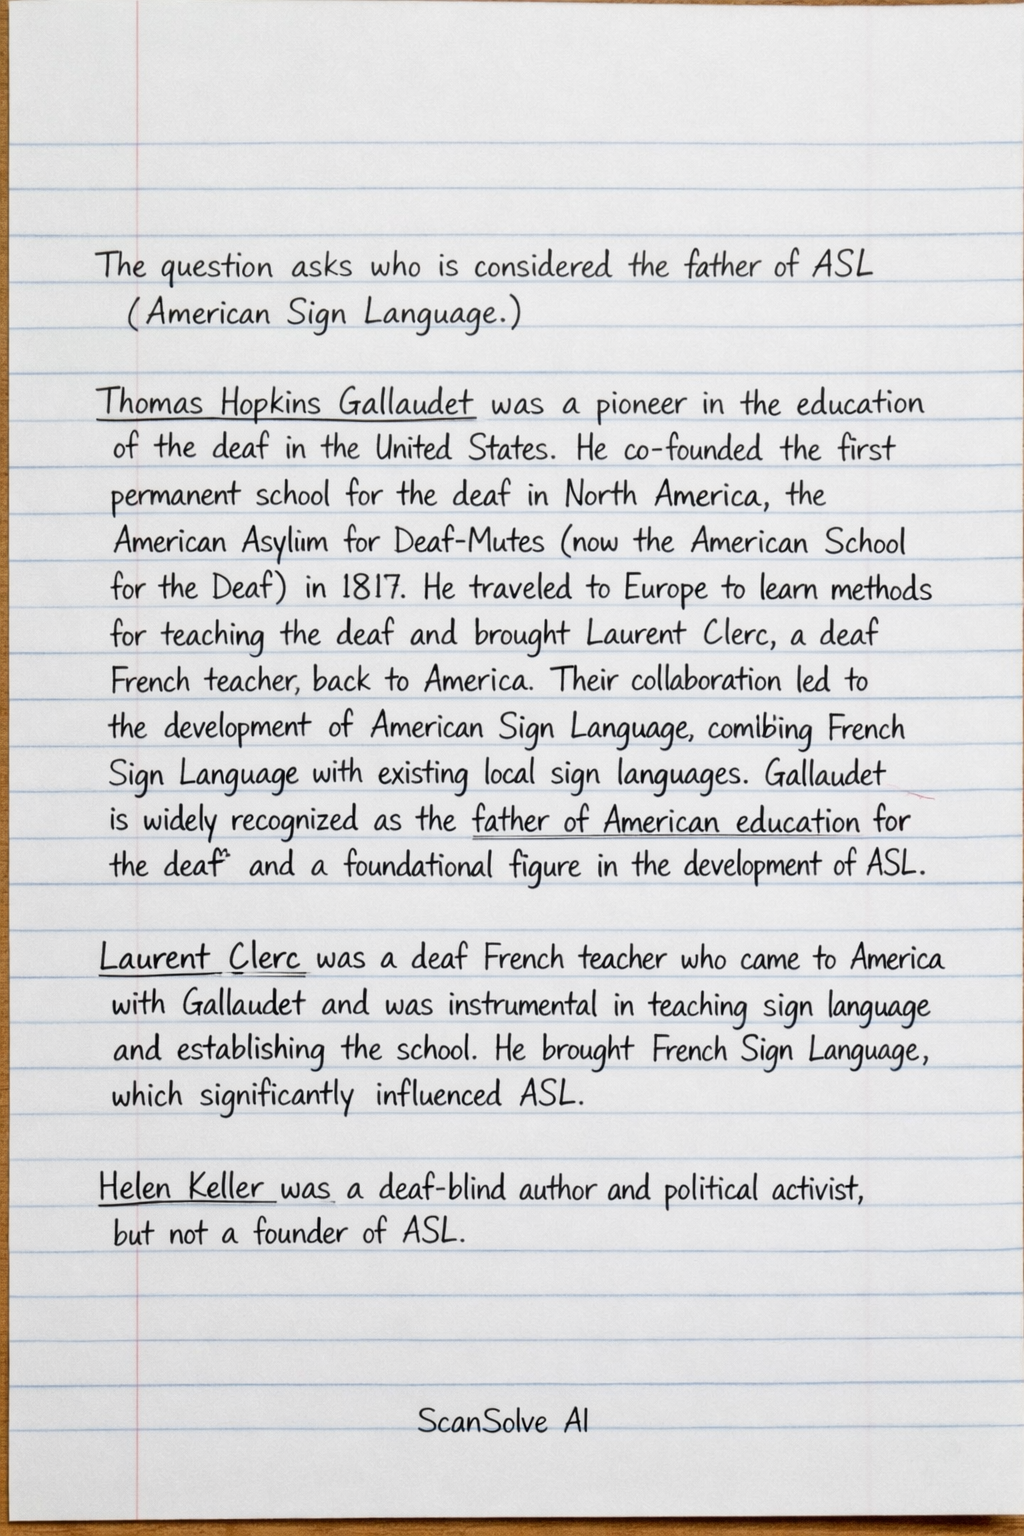 The question asks who is considered the father of ASL
(American Sign Language.)
Thomas Hopkins Gallaudet was a pioneer in the education
of the deaf in the United States. He co-founded the first
permanent school for the deaf in North America, the
American Asylum for Deaf-Mutes (now the American School
for the Deaf) in 1817. He traveled to Europe to learn methods
for teaching the deaf and brought Laurent Clerc, a deaf
French teacher, back to America. Their collaboration led to
the development of American Sign Language, comibing French
Sign Language with existing local sign languages. Gallaudet
is widely recognized as the father of American education for
the deaf" and a foundational figure in the development of ASL.
Laurent Clerc was a deaf French teacher who came to America
with Gallaudet and was instrumental in teaching sign language
and establishing the school. He brought French Sign Language,
which significantly influenced ASL.
Helen Keller was a deaf-blind author and political activist,
but not a founder of ASL.
ScanSolve AI